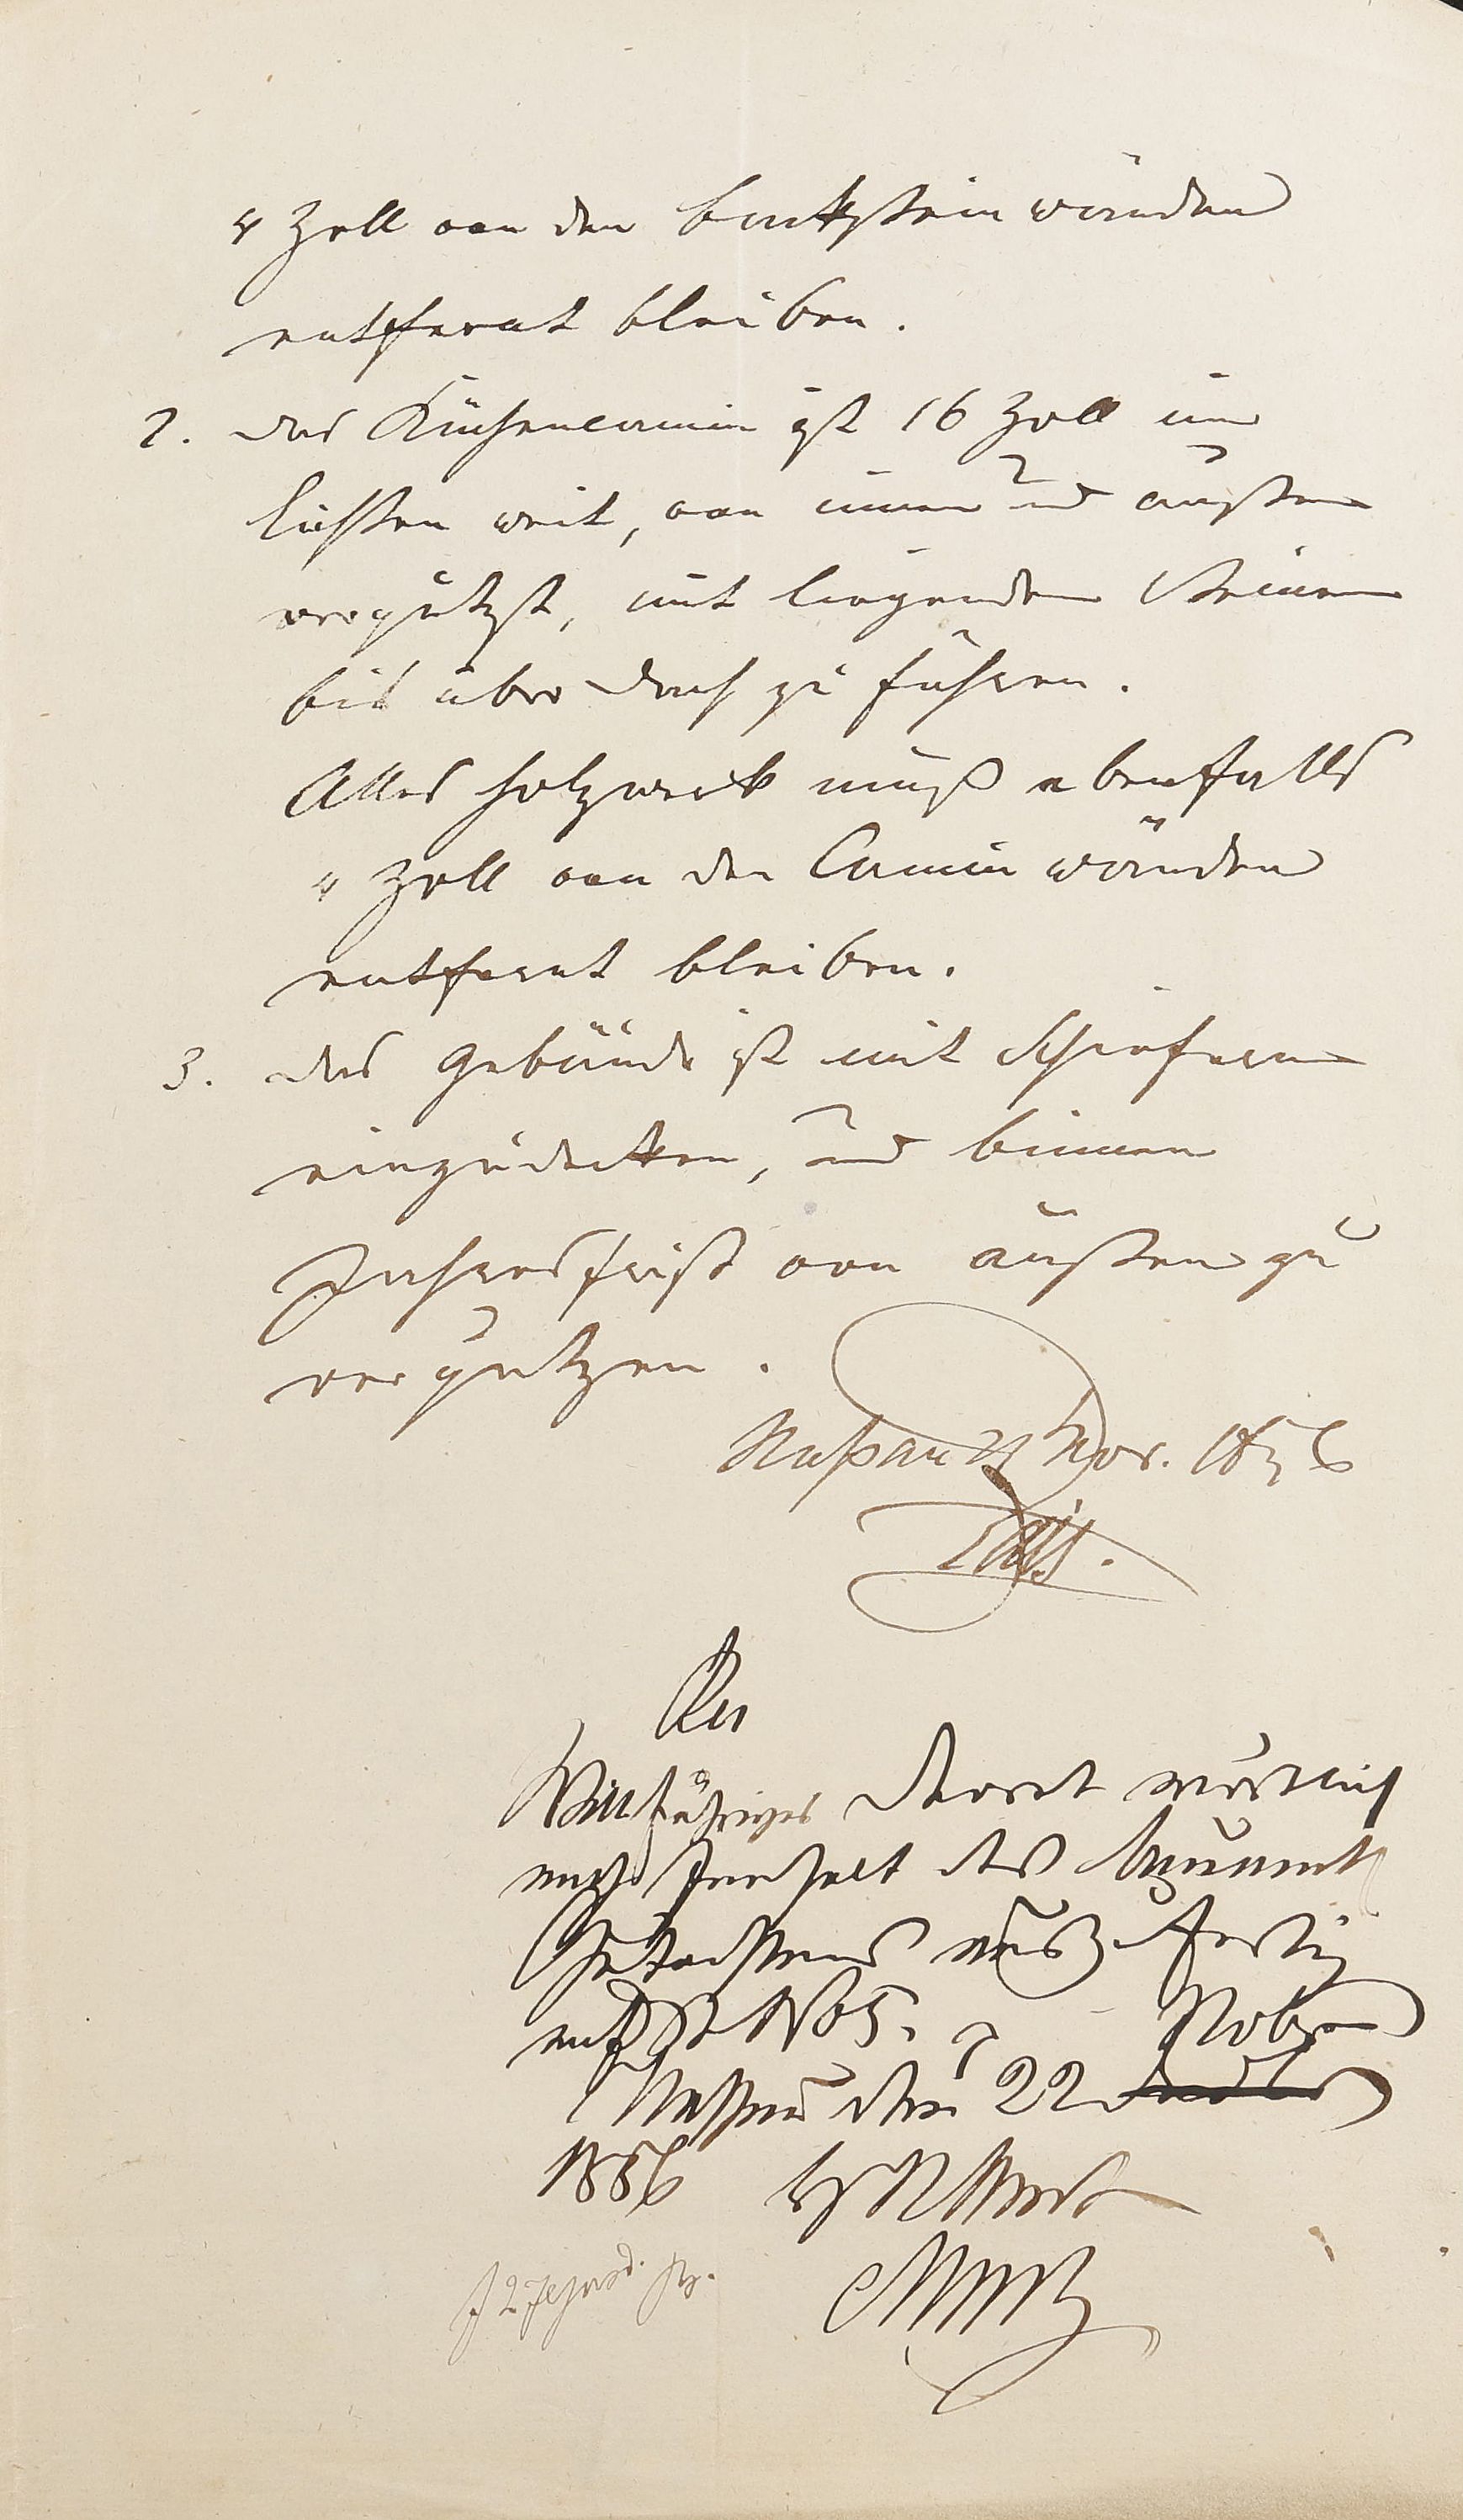 4 Zoll von den backsteinwänden
entfernt bleiben.
2. das Küchencamin ist 16 Zoll im
lichten weit, von innen und außen
verputzt, mit liegenden Steinen
bis über dach zu führen.
Alles holzwerk muß ebenfalls
4 Zoll von den Camin wänden
entfernt bleiben.
3. das Gebäude ist mit Schiefern
einzudecken, und binnen
Jahresfrist von außen zu
verputzen.
Naßau 21 Nov. 1856
Willfähriges Decret
nach Inhalt des
Gutachtens
Nassau den 22 Nobr
1856